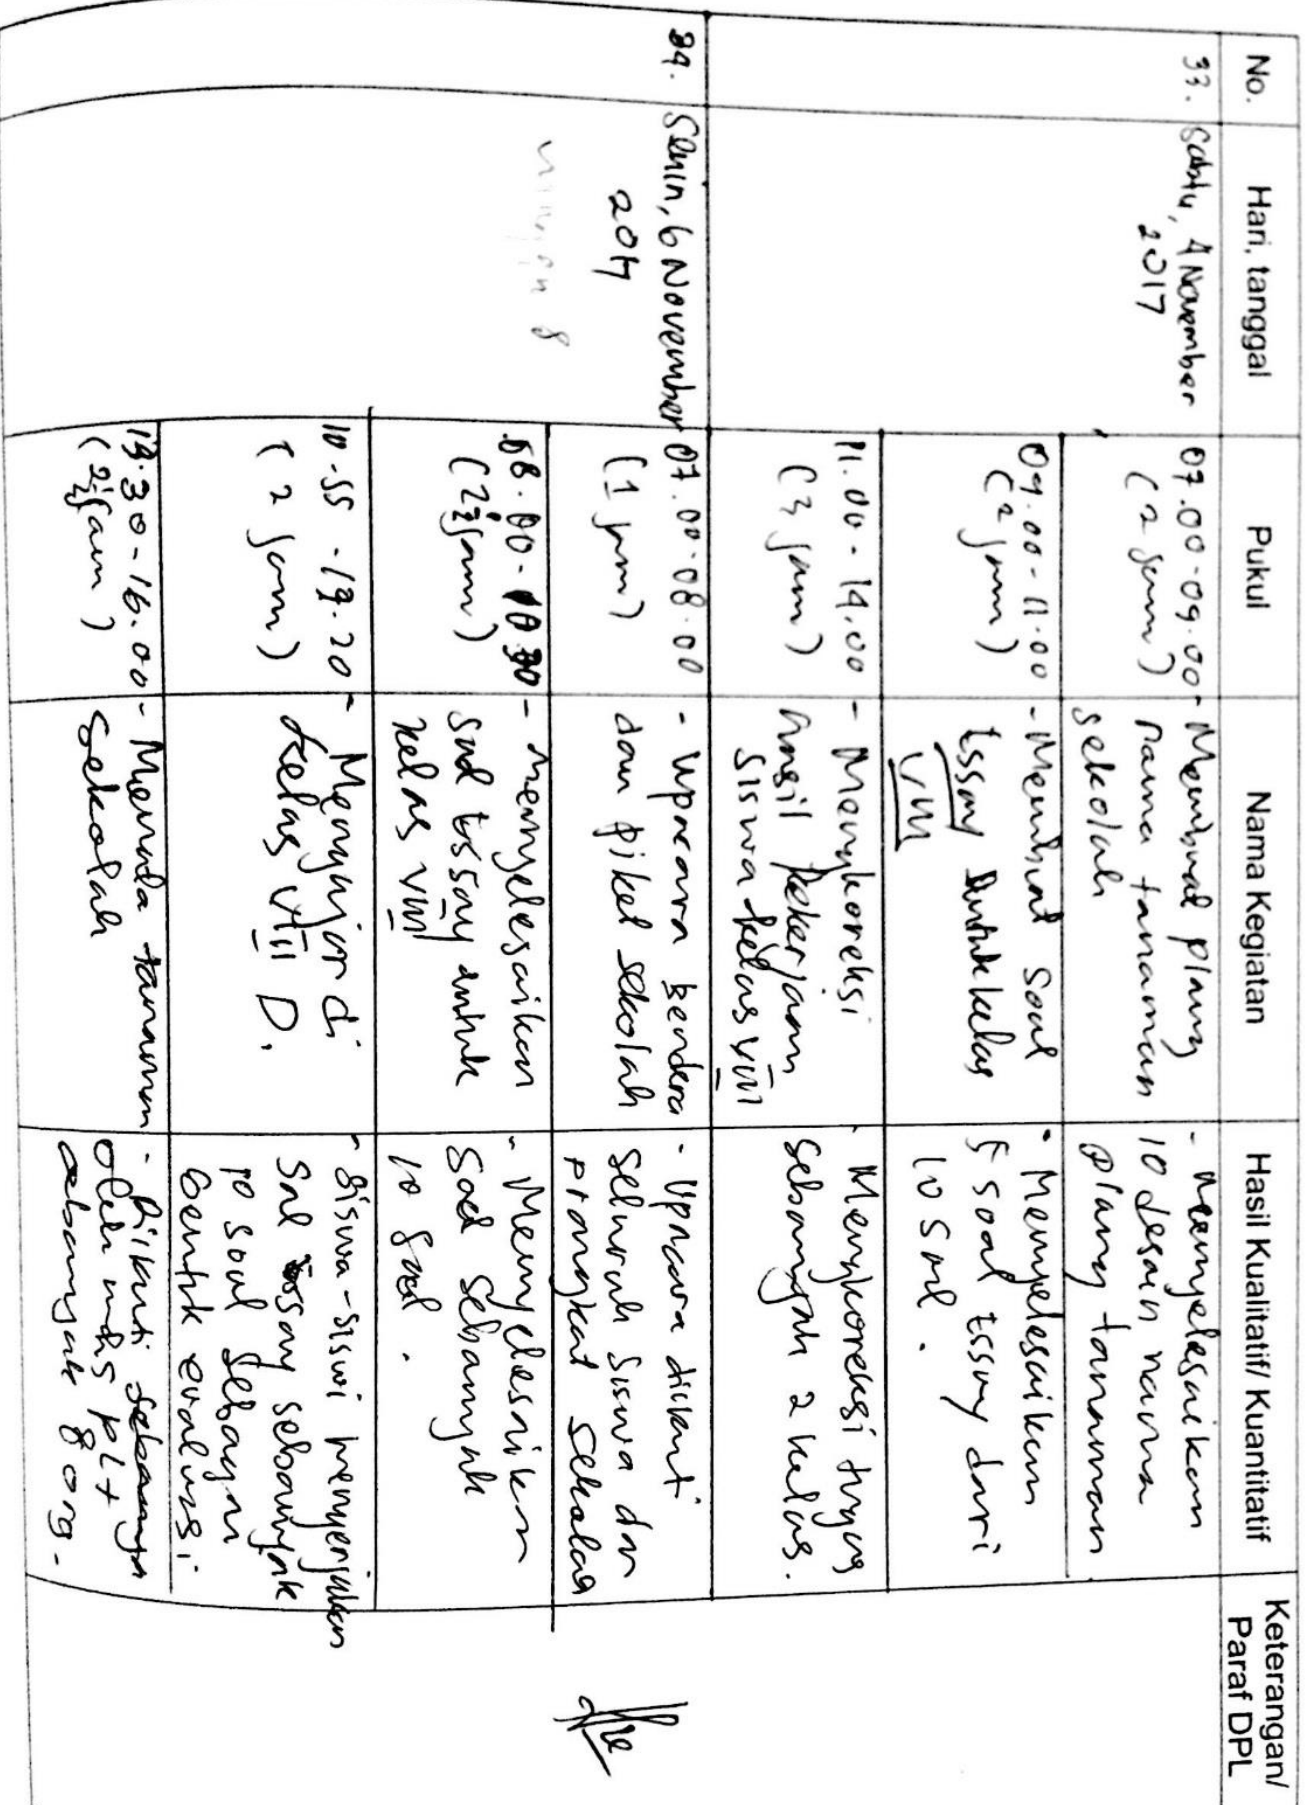 No.
Hari, tanggal
Pukul
Nama Kegiatan
Hasil Kualitatif/ Kuantitatif
Keterangan/
Paraf DPL
33.
Sabtu, 4 November
2017
07.00-09.00
(2 jam)
- Membuat plang
nama tanaman
sekolah
- Menyelesaikan
10 desain nama
plang tanaman
09.00-11.00
(2 jam)
- Membuat soal
Essay untuk kelas
VIII
- Menyelesaikan
5 soal Essay dari
10 soal.
11.00-14.00
(3 jam)
- Mengkoreksi
hasil pekerjaan
siswa kelas VIII
- Mengkoreksi tugas
sebanyak 2 kelas.
34.
Senin, 6 November
2017
07.00-08.00
(1 jam)
- Upacara bendera
dan piket sekolah
- Upacara diikuti
seluruh siswa dan
prangkat sekolah
08.00-10.30
(2½ jam)
- Menyelesaikan
soal Essay untuk
kelas VIII
- Menyelesaikan
soal sebanyak
10 soal.
10.55-13.20
(2 jam)
- Mengajar di
kelas VIII D.
- Siswa-siswi mengerjakan
soal essay sebanyak
10 soal sebagai
bentuk evaluasi.
13.30-16.00
(2½ jam)
- Menata tanaman
sekolah
- Diikuti
oleh mhs PLT
sebanyak 8 org.